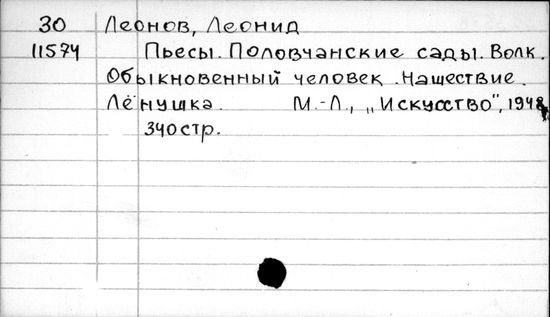 30 Леонов, Леонид
11574 Пьесы. Половчанские сады. Волк.
Обыкновенный человек. Нашествие.
Лёнушка. М.-Л., „Искусство", 1948,
340стр.